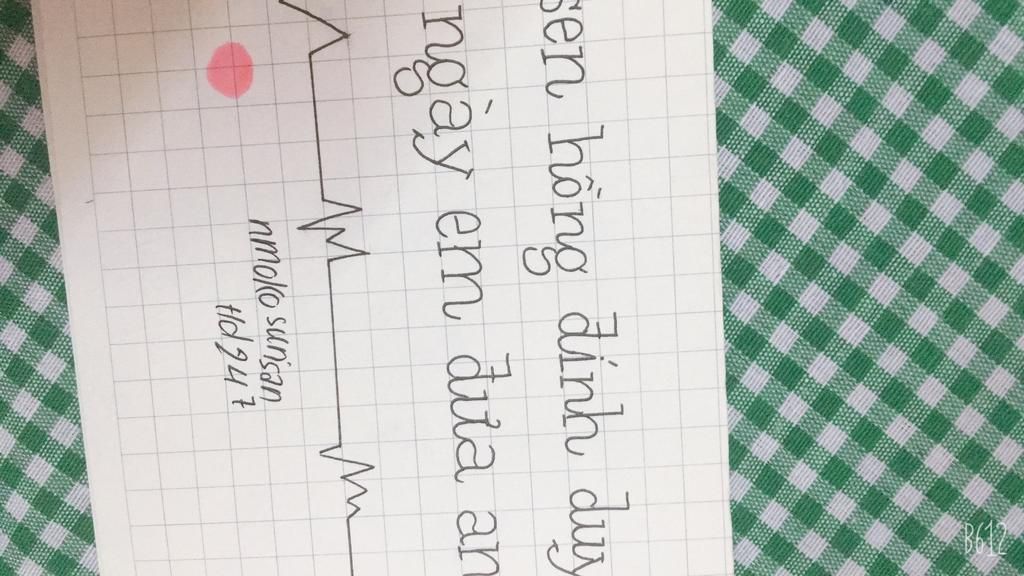 sen hồng đính duy
ngày em đưa an
nmolo sunsan
tld 247
B612